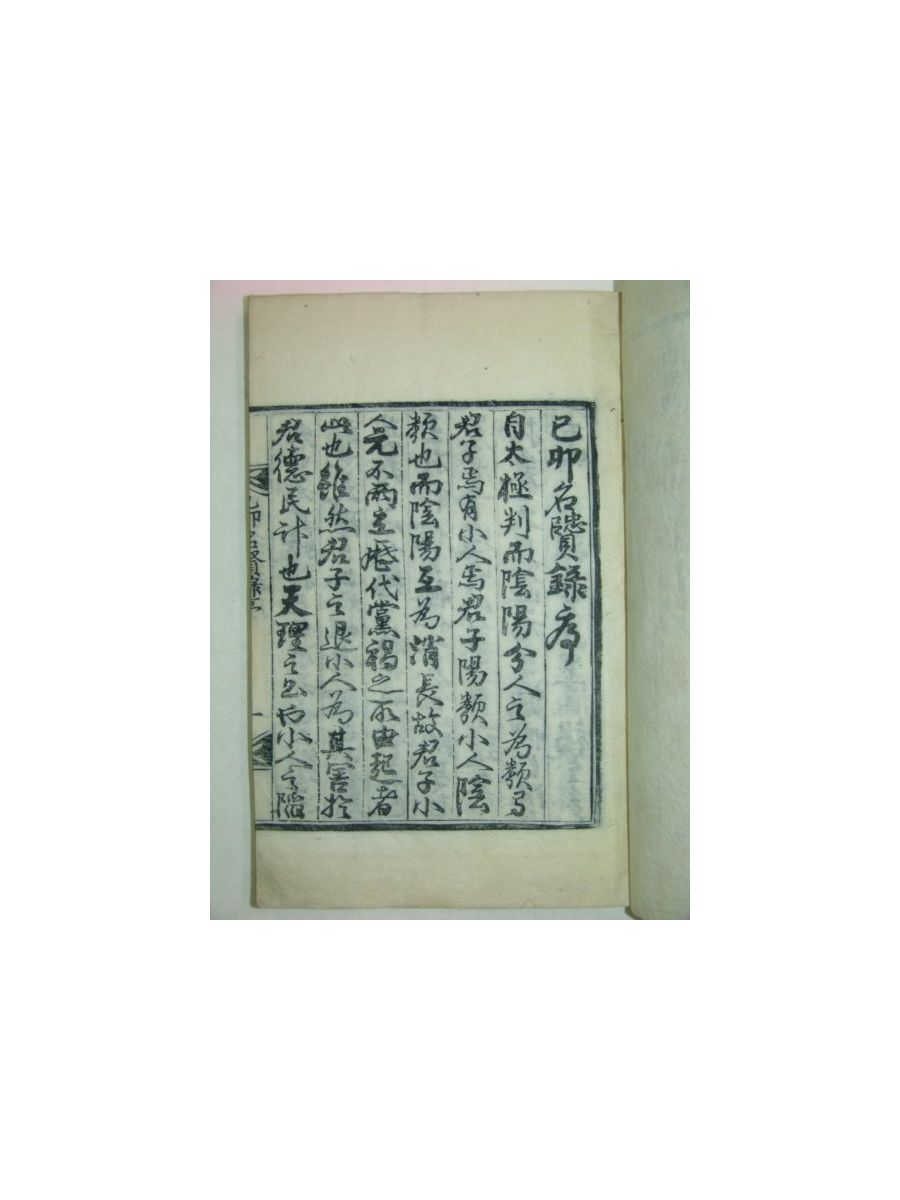 己卯名賢錄序
自太極判而陰陽分人之為類有
君子焉有小人焉君子陽類小人陰
類也而陰陽互為消長故君子小
人元不兩立歷代黨禍之所由起者
此也雖然君子之退小人為其害於
君德民計也天理之公也小人之陷
己卯名賢錄序
一